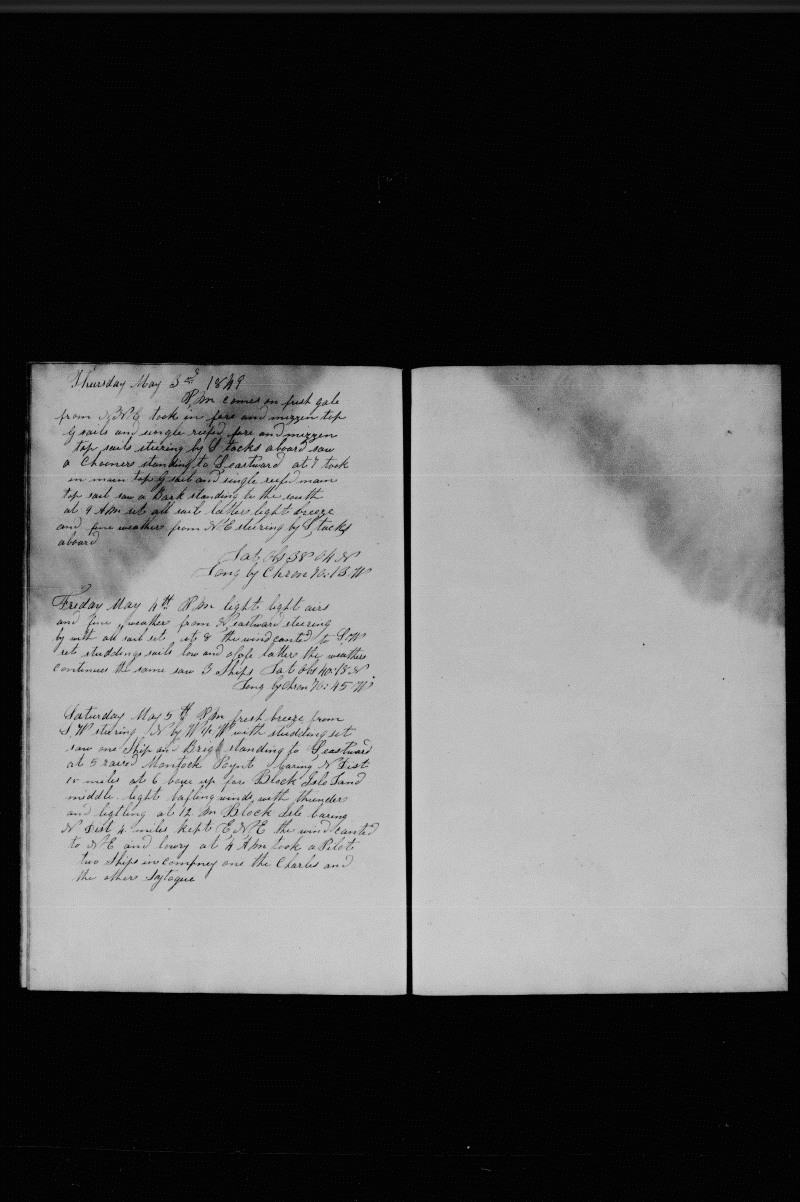 Thursday May 3rd 1849
P.M comes on fresh gale
from N.N.E took in fore and mizzen top
g sails and single reefed fore and mizzen
top sails steering by S tacks aboard saw
a Chooners standing to S eastward at 7 took
in main top g sail and single reefd main
top sail saw a Bark standing to the south
at 9 A m set all sail latter light breeze
and fine weather from N E steering by S tacks
aboard
Lat Obs 38 04 N
Long by Chron 70:13 W
Friday May 4th P M light light airs
and fine weather from N eastward steering
by with all sail set at 8 the wind canted to S.W
set studdings sails low and alofe latter the weather
continues the same saw 3 Ships Lat Obs 40:18 N
Long by Chron 70:45 W
Saturday May 5th P M fresh breeze from
S.W steering N by W ½ W with studding set
saw one Ship and Brig standing to S eastward
at 5 raised Montock Poynt baring N Dist
15 miles at 6 bore up for Block Isle Sand
middle light bafling winds, with thunder
and ligtling at 12 M Block Isle baring
N Dist 4 miles kept E N E the wind canted
to N E and lowry at 4 A m took a Pilot
two Ships in compney one the Charles and
the other